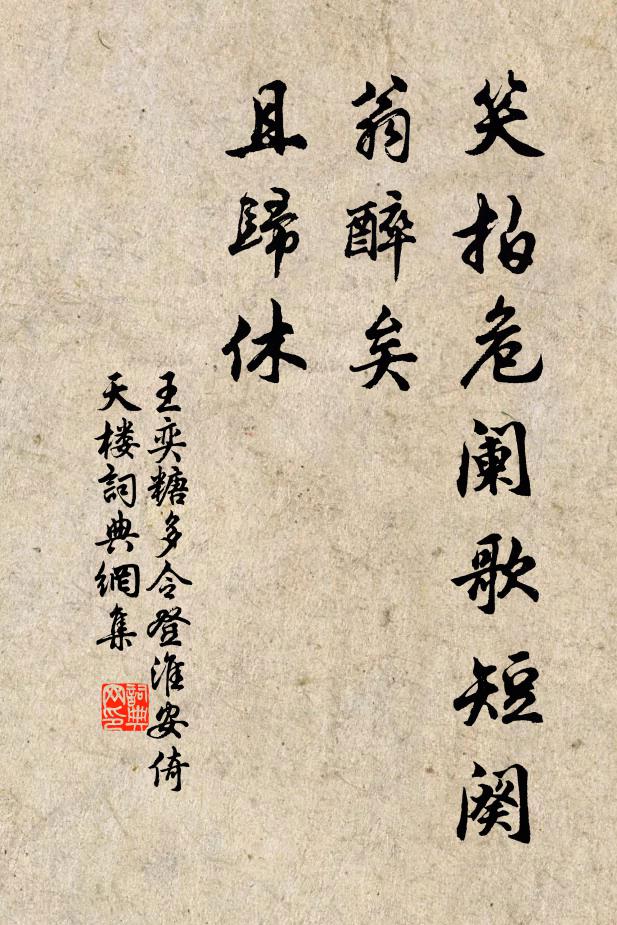 笑拍危阑歌短阕
翁醉矣
且歸休
王奕糖多令登淮安倚
天楼詞典網集
詞典网印